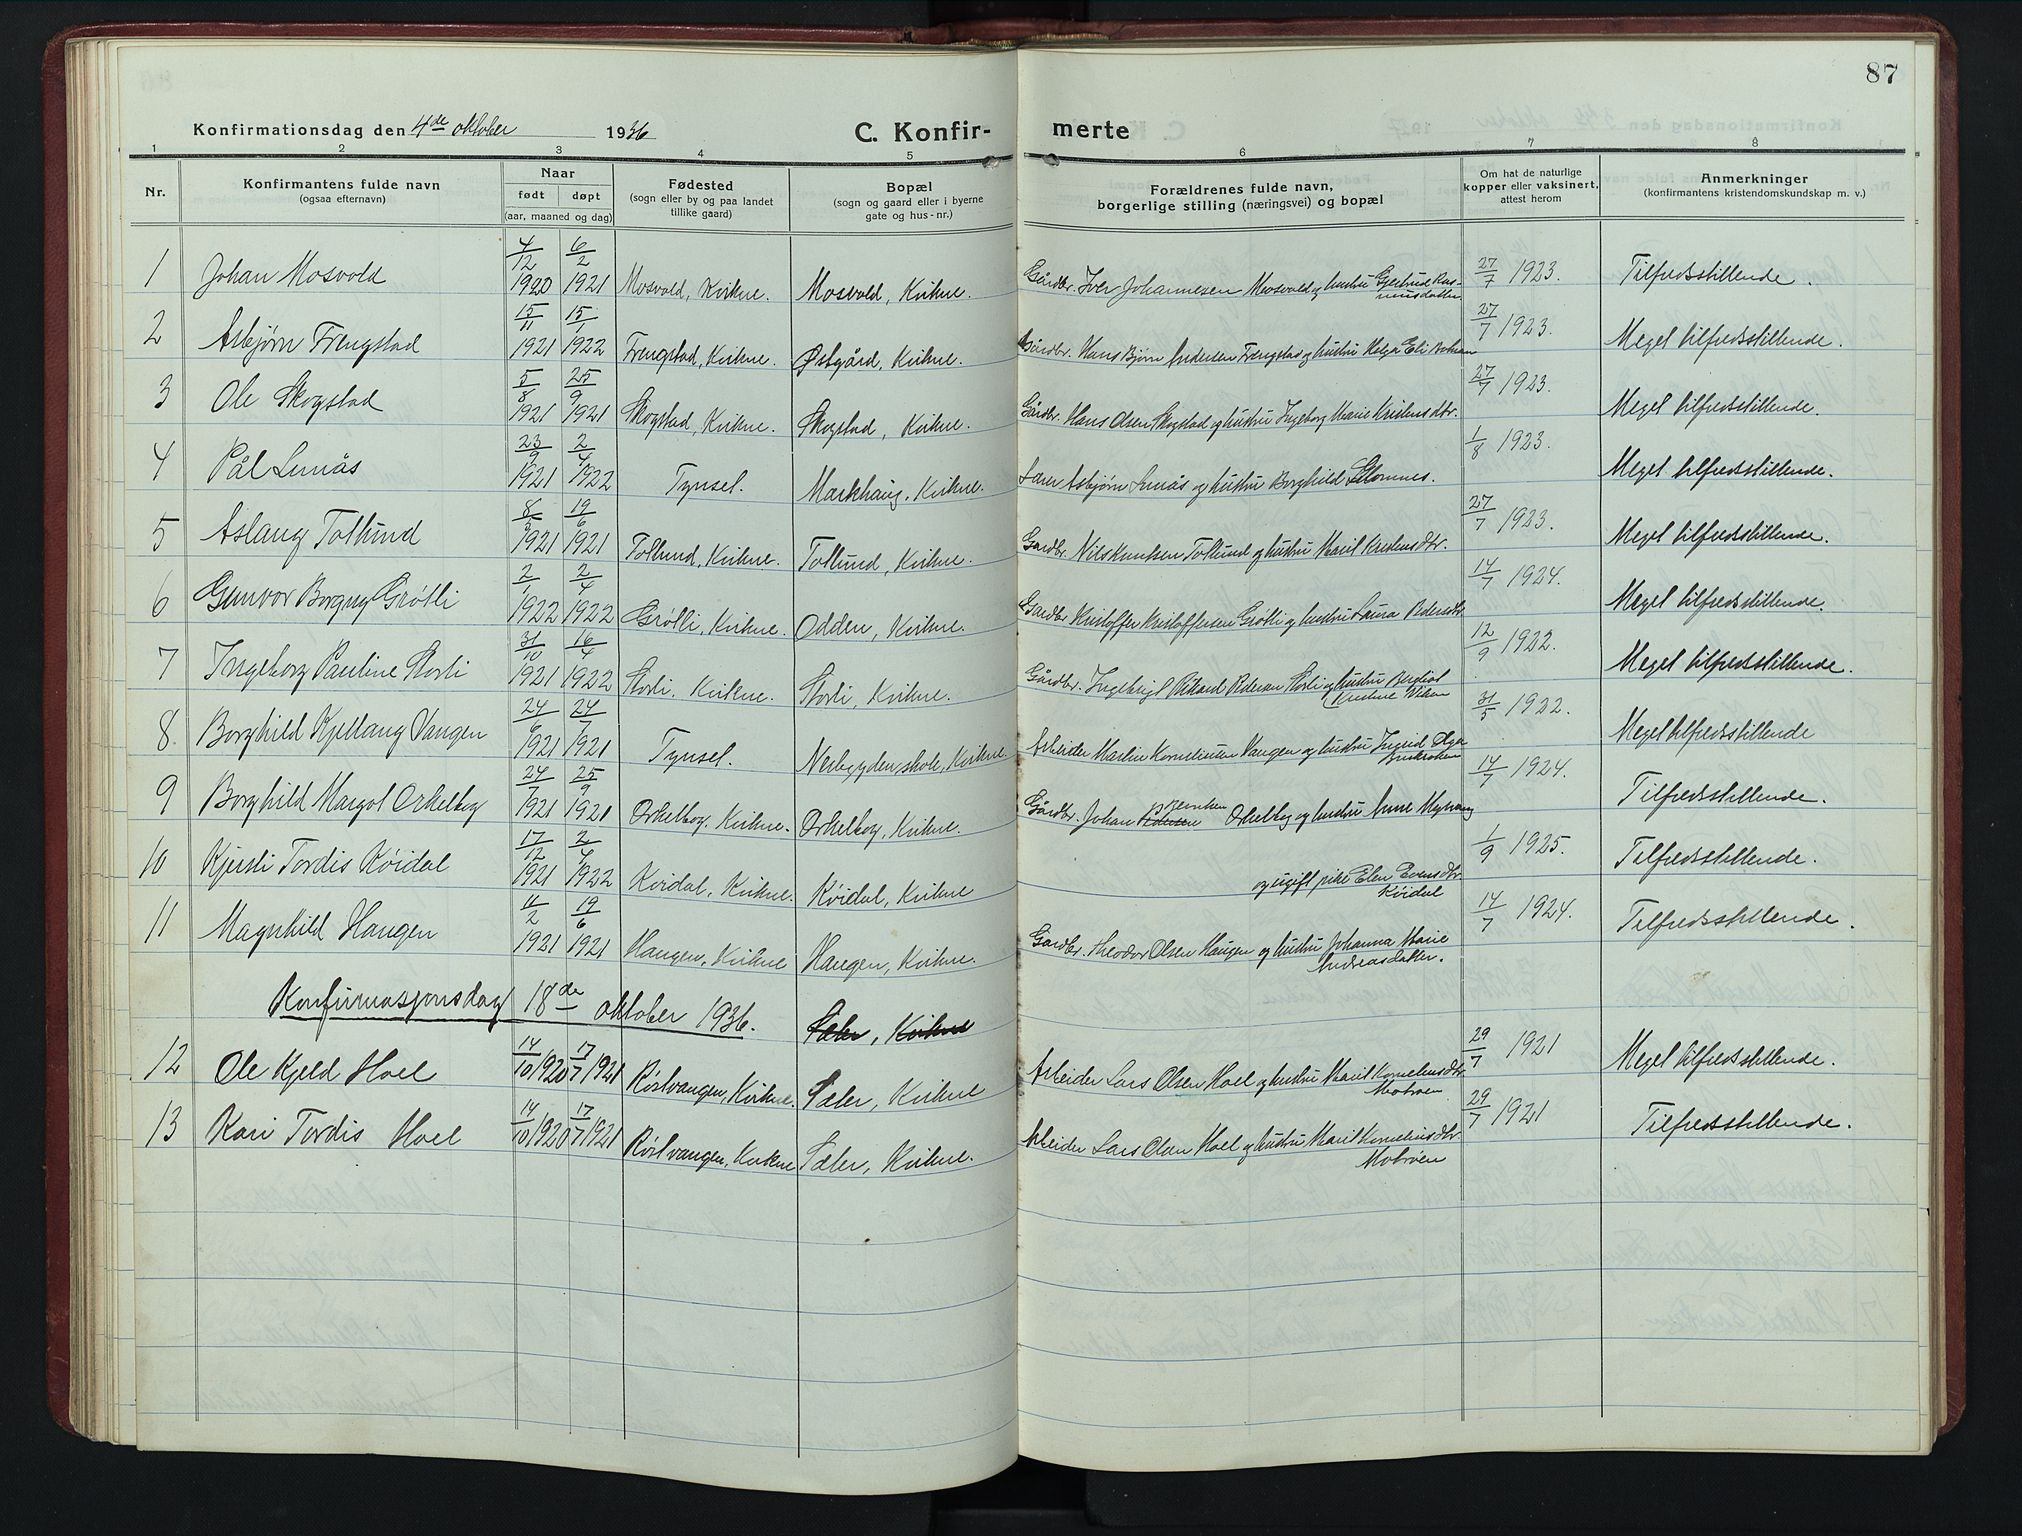 87
Konfirmationsdag den 4de oktober 1936 C. Konfirmerte
1 2 3 4 5 6 7 8
Nr. Konfirmantens fulde navn (ogsaa efternavn) Naar født døpt (aar, maaned og dag) Fødested (sogn eller by og paa landet tillike gaard) Bopæl (sogn og gaard eller i byerne gate og hus-nr.) Forældrenes fulde navn, borgerlige stilling (næringsvei) og bopæl Om hat de naturlige kopper eller vaksinert, attest herom Anmerkninger (konfirmantens kristendomskundskap m. v.)
1 Johan Mosvold 4/12 1920 6/2 1921 Mosvold, Kvikne. Mosvold, Kvikne. Gårdbr. Iver Johannesen Mosvold og hustru Gjertrud Rasmusdatter 27/7 1923. Tilfredsstillende.
2 Asbjørn Frengstad 15/11 1921 15/1 1922 Frengstad, Kvikne. Østgård, Kvikne. Gårdbr. Hans Bjørn Andersen Frengstad og hustru Helga Eli 27/7 1923. Meget tilfredsstillende.
3 Ole Skogstad 5/8 1921 25/9 1921 Skogstad, Kvikne. Skogstad, Kvikne. Gårdbr. Hans Olsen Skogstad og hustru Ingeborg Marie Kristensdtr. 27/7 1923. Meget tilfredsstillende.
4 Pål Semås 23/9 1921 2/4 1922 Tynset. Markhaug, Kvikne. Lærer Asbjørn Semås og hustru Borghild Glomnes. 1/8 1923. Meget tilfredsstillende.
5 Aslaug Tollund 8/3 1921 19/6 1921 Tollund, Kvikne. Tollund, Kvikne. Gardbr. Nils Knutsen Tollund og hustru Marit Kristensdtr. 27/7 1923. Meget tilfredsstillende.
6 Gunvor Borgny Grøtli 2/1 1922 2/4 1922 Grøtli, Kvikne. Odden, Kvikne. Gardbr Kristoffer Kristoffersen Grøtli og hustru Laura Pedersdtr 14/7 1924. Meget tilfredsstillende.
7 Ingeborg Pauline Storli 31/10 1921 16/4 1922 Storli, Kvikne. Storli, Kvikne. Gårdbr. Ingebrigt Rikard Pedersen Storli og hustru Bergliot Kristine Viken 12/9 1922. Meget tilfredsstillende.
8. Borghild Kjellaug Vangen 24/6 1921 24/7 1921 Tynset. Nerbygden skole, Kvikne. Arbeider Martin Korneliusen Vangen og hustru Ingrid Olga 31/5 1922. Meget tilfredsstillende
9 Borghild Margot Orkelbog 24/7 1921 25/9 1921 Orkelbog, Kvikne. Orkelbog, Kvikne. Gårdbr. Johan Orkelbog og hustru Anne 14/7 1924. Tilfredsstillende.
10 Kjersti Tordis Køidal 17/12 1921 2/4 1922 Kvidal, Kvikne. Køidal, Kvikne og ugift pike Elen Evensdtr. Køidal 1/9 1925. Tilfredsstillende.
11 Magnhild Haugen 11/2 1921 19/6 1921 Haugen, Kvikne Haugen, Kvikne. Gårdbr. Theodor Olsen Haugen og hustru Johanna Marie Andreasdatter. 14/7 1924. Tilfredsstillende.
Konfirmasjonsdag 18de oktober 1936. Sæter, Kvikne
12 Ole Kjeld Hoel 14/10 1920 17/7 1921 Røstvangen, Kvikne. Sæter, Kvikne Arbeider Lars Olsen Hoel og hustru Marit Korneliusdtr. Motrøen 29/7 1921 Meget tilfredsstillende.
13 Kari Tordis Hoel 14/10 1920 17/7 1921 Røstvangen, Kvikne Sæter, Kvikne. Arbeider Lars Olsen Hoel og hustru Marit Korneliusdtr. Motrøen 29/7 1921 Tilfredsstillende.